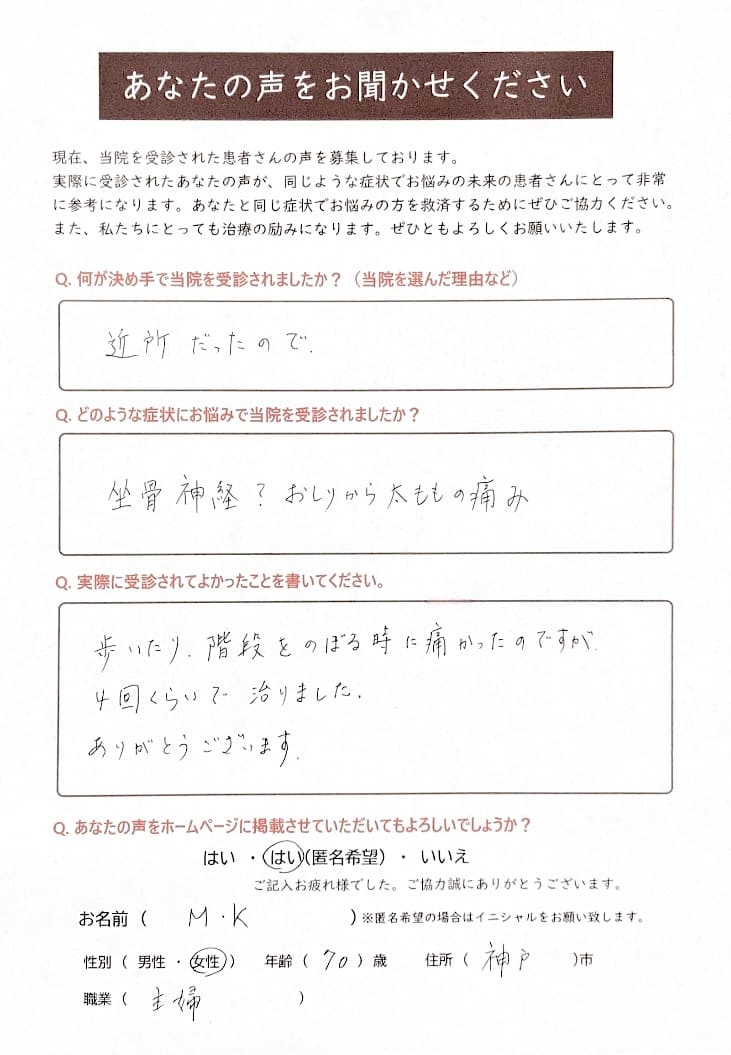 あなたの声をお聞かせください
現在、当院を受診された患者さんの声を募集しております。
実際に受診されたあなたの声が、同じような症状でお悩みの未来の患者さんにとって非常
に参考になります。あなたと同じ症状でお悩みの方を救済するためにぜひご協力ください。
また、私たちにとっても治療の励みになります。ぜひともよろしくお願いいたします。
Q. 何が決め手で当院を受診されましたか？（当院を選んだ理由など）
近所だったので.
Q. どのような症状にお悩みで当院を受診されましたか？
坐骨神経？おしりから太ももの痛み
Q. 実際に受診されてよかったことを書いてください。
歩いたり、階段をのぼる時に痛かったのですが、
4回くらいで 治りました.
ありがとうございます.
Q. あなたの声をホームページに掲載させていただいてもよろしいでしょうか？
はい ・ はい(匿名希望) ・ いいえ
ご記入お疲れ様でした。ご協力誠にありがとうございます。
お名前（ M・K ）※匿名希望の場合はイニシャルをお願い致します。
性別（ 男性 ・ 女性 ） 年齢（ 70 ）歳 住所（ 神戸 ）市
職業（ 主婦 ）